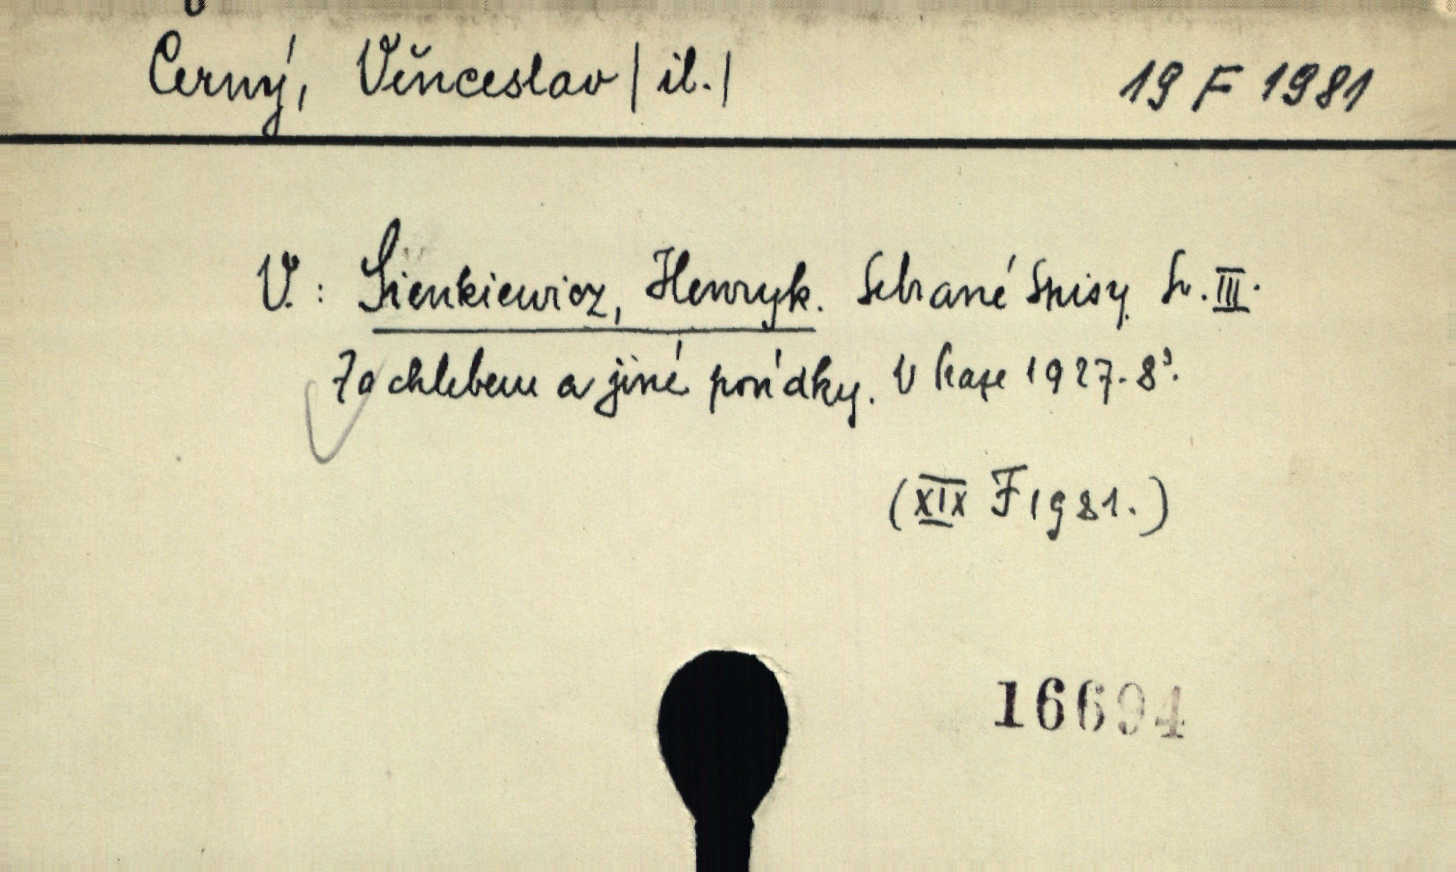 Černý, Věnceslav /il./ 19 F 1981
V.: Sienkiewicz, Henryk. Sebrané spisy. Sv. III.
Za chlebem a jiné povídky. V Praze 1927. 8°.
(XIX F 1981.)
16694